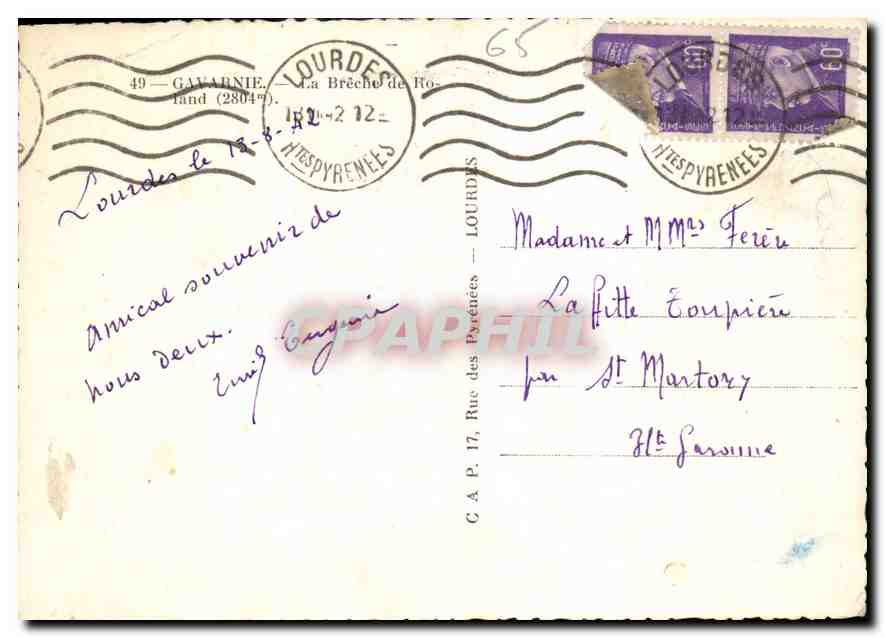 65
49 — GAVARNIE. — La Brèche de Ro-
land (2804m).
LOURDES
Htes PYRENEES
LOURDES
Htes PYRENEES
60c
60c
Lourdes le 18-8-42
Amical souvenir de
nous deux.
Eugenia
C A P. 17, Rue des Pyrénées — LOURDES
Madame et M Mrs Ferère
Laffitte Toupière
par St Martory
Hte Garonne
CPAPHIL